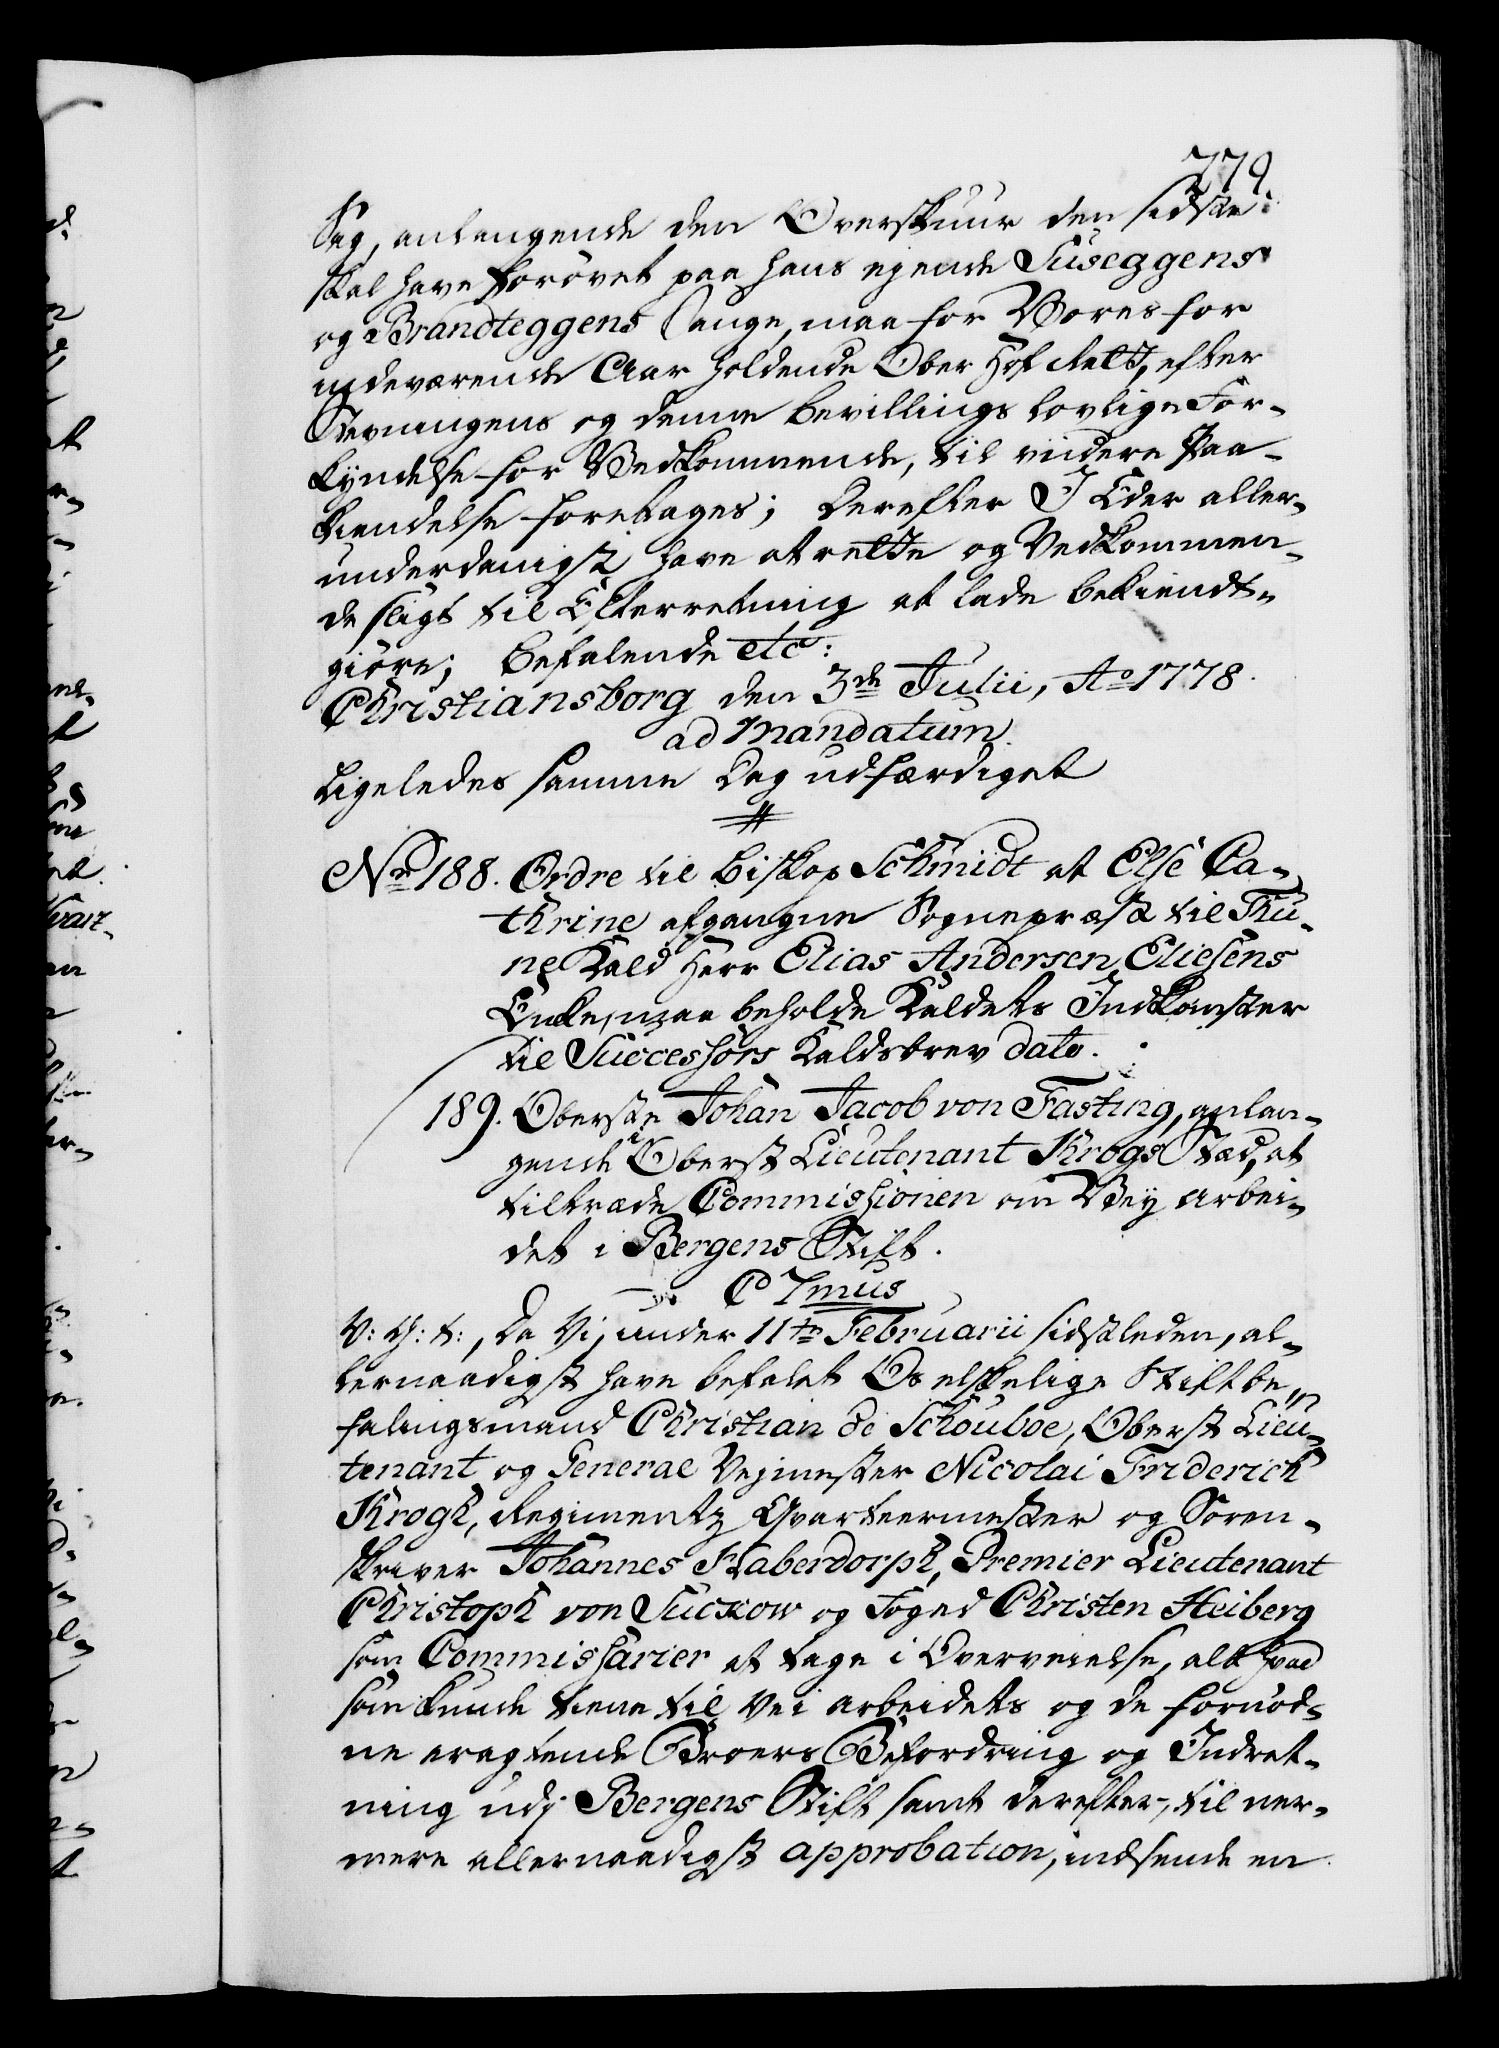 779
Sag, anlangende den Overskuur den sidste
skal have forövet paa hans ejende Suseggens
og Brandteggens Sauge, maa for Vores for
indeværende Aar holdende Ober Hof Rett, efter
Stevningens og denne bevillings lovlige For-
kyndelse for Vedkommende, til viidere Paa-
kiendelse foretages; Derefter I Eder aller-
underdanigst have at rette og Vedkommen-
de sligt til Efterretning at lade bekiendt-
giöre; Befalende etc:
Christiansborg den 3de Julii, Ao 1778.
ad Mandatum.
Ligeledes samme Dag udfærdiget
Nr 188. Ordre til Biskop Schmidt at Else Ca-
thrine afgangne Sognepræst til Fu-
ne Kald Herr Elias Andersen Eliesens
Enke, maa beholde Kaldets Indkomster
til Successors Kaldsbrev dato.
189. Oberste Johan Jacob von Fasting, anlan-
gende i Oberst Lieutenant Krogs Stæd, at
tiltræde Commissionen om Vey arbei-
det i Bergens Stift.
C 7mus
V: G: t:, Da Vi, under 11te Februarii sidstleden, al-
lernaadigst have befalet Os elskelige Stiftbe-
falingsmand Christian de Schouboe, Oberst Lieu-
tenant og General Vejmester Nicolai Friderich
Krogh, Regimentz Qvarteermester og Soren-
skriver Johannes Haberdorph, Premier Lieutenant
Christoph von Suckow og Foged Christen Heiberg
som Commissarier at tage i Overveielse, alt hvad
som kunde tiene til Vei arbeidets og de fornöd-
ne eragtende Broers Befordring og Indret-
ning udj Bergens Stift samt derefter, til ner-
mere allernaadigst approbation, indsende en